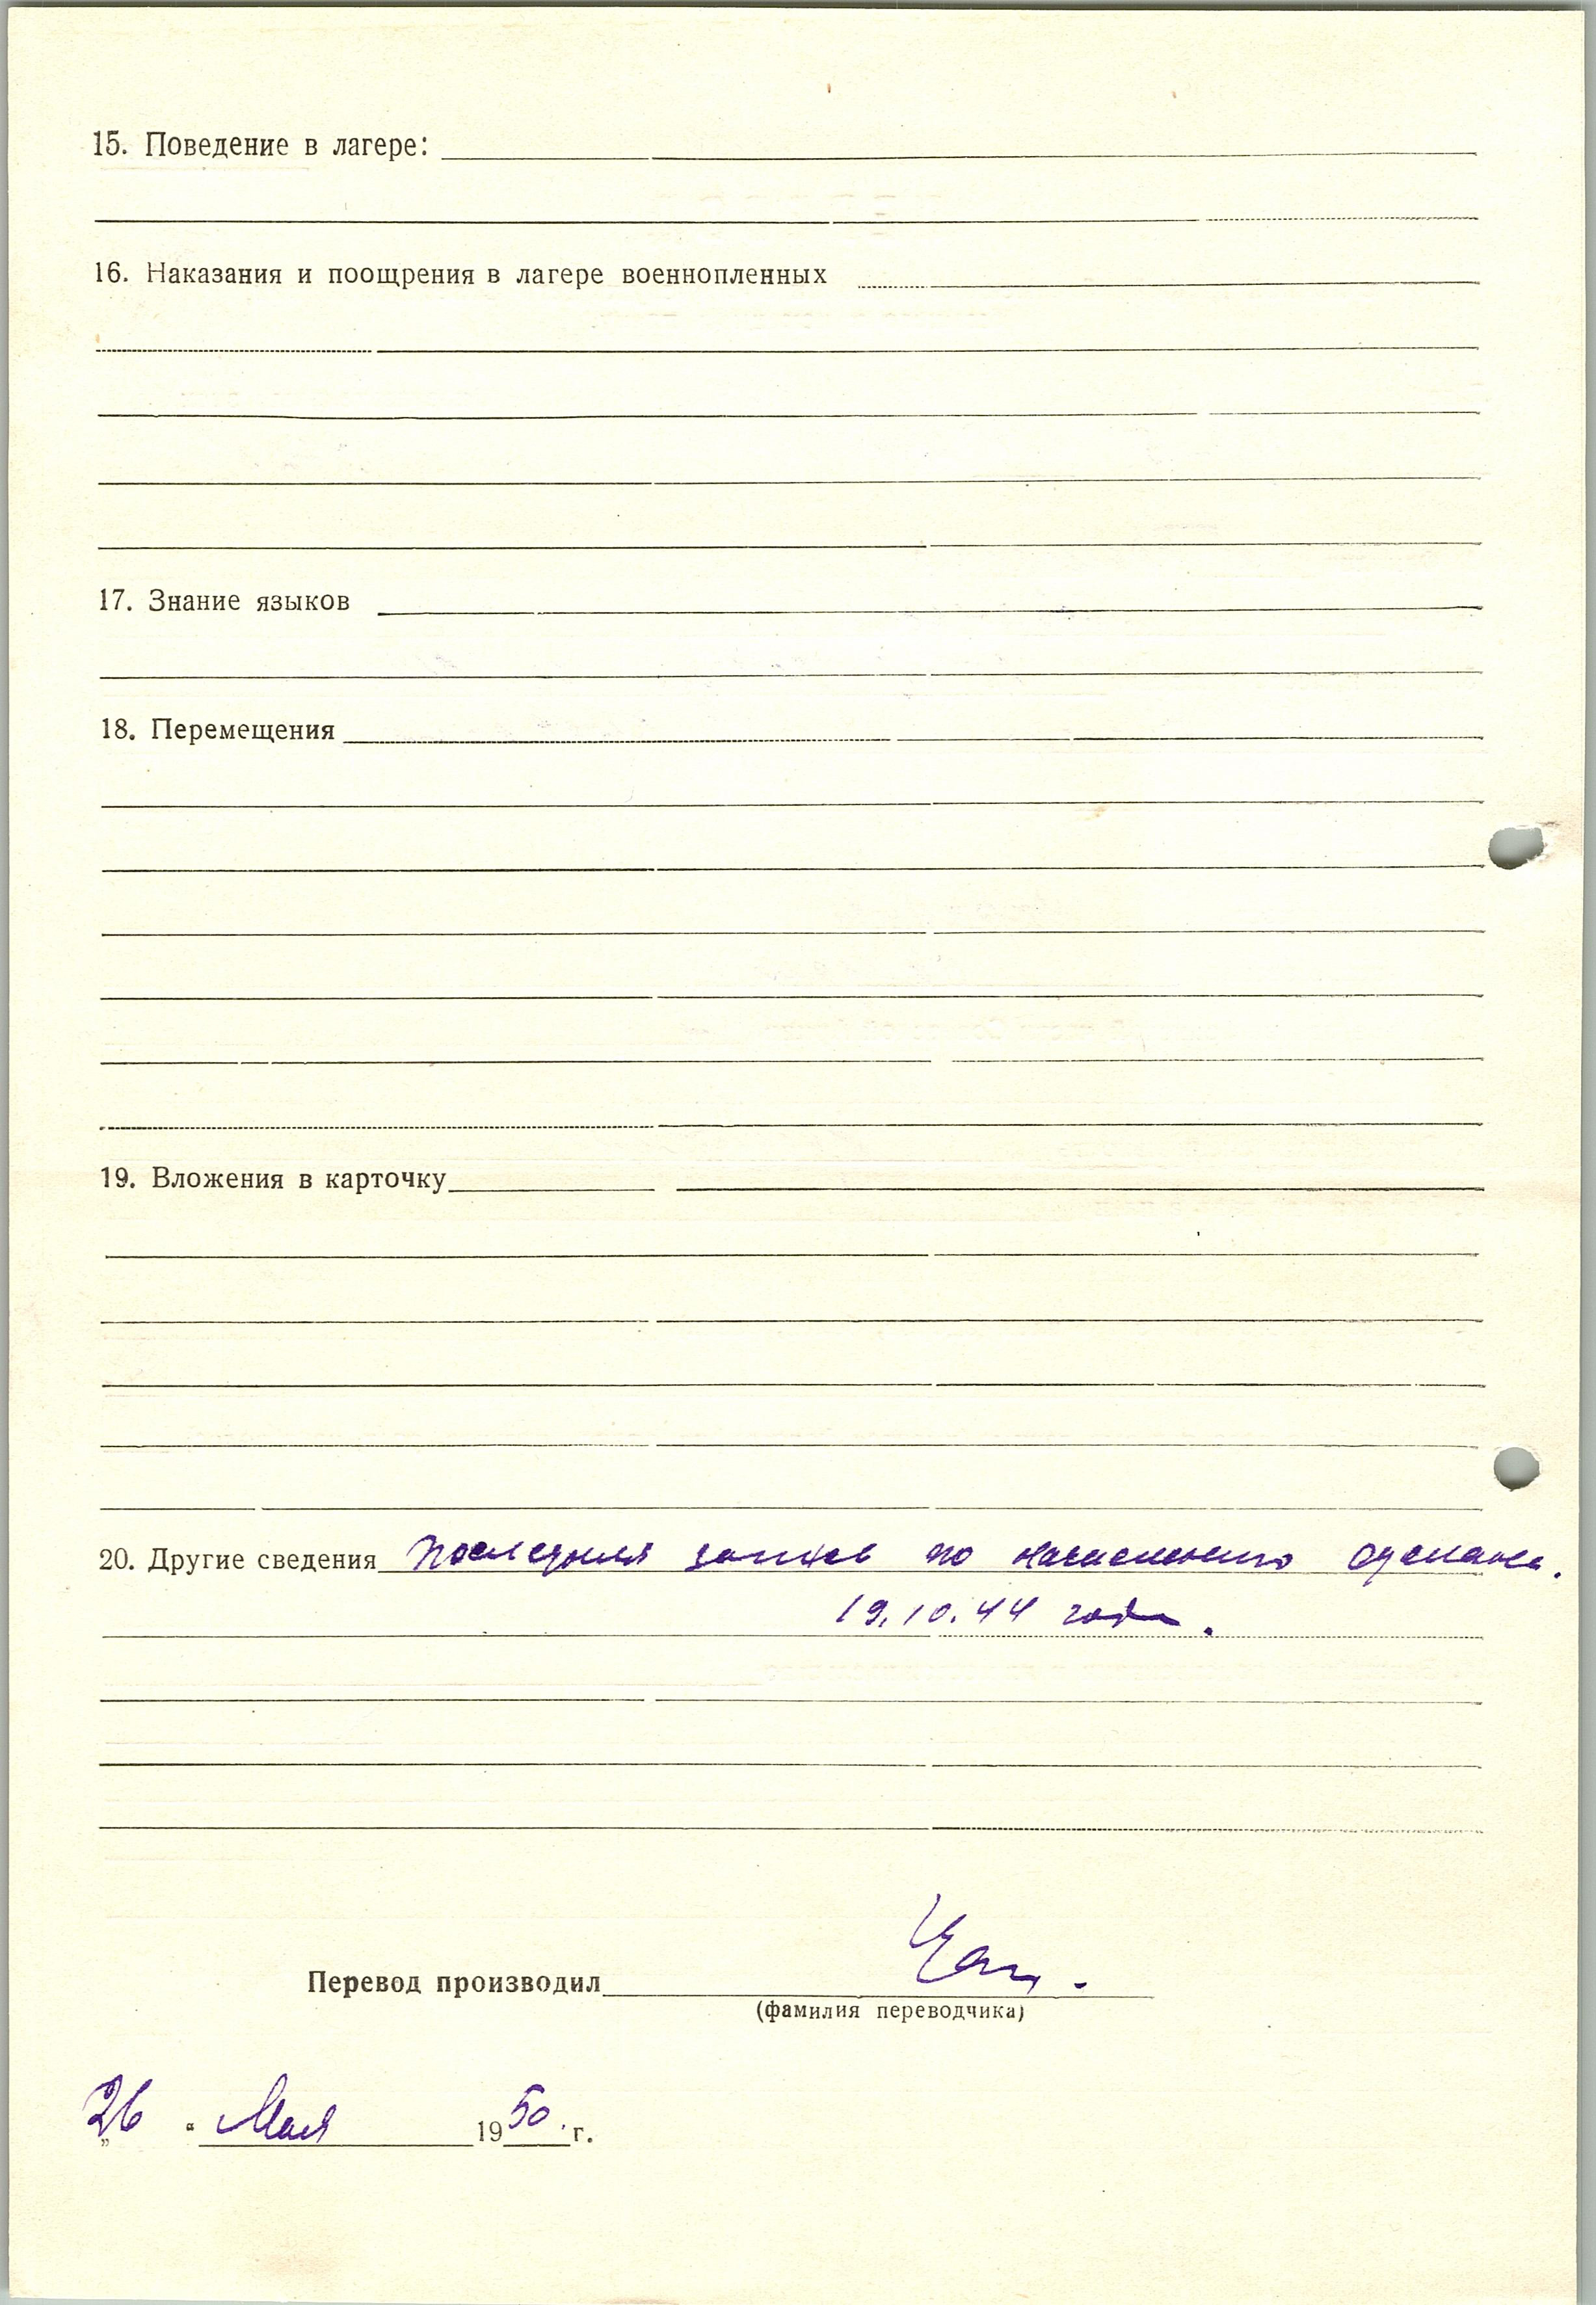 15. Поведение в лагере:
16. Наказания и поощрения в лагере военнопленных
17. Знание языков
18. Перемещения
19. Вложения в карточку
20. Другие сведения Последняя запись по начислению сделана.
19.10.44 года.
Перевод производил
(фамилия переводчика)
„26“ Мая 1950 г.